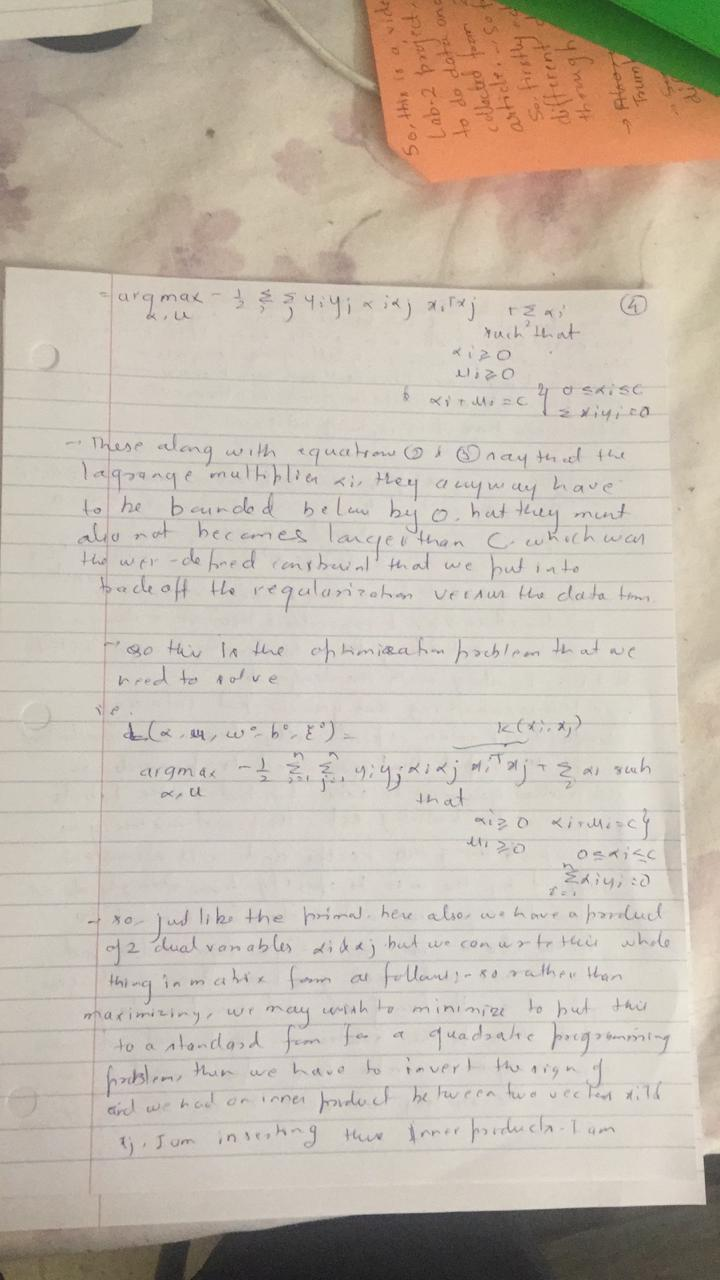 So, this is a vide
Lab-2 project.
to do data and
collected from
article. So f
So, firstly
different
through
→
Trump
④
= argmax - 1/2 Σ Σ yi yj αi αj xiᵀxj + Σ αi
α, u i j
such that
αi ≥ 0
μi ≥ 0
& αi + μi = C } 0 ≤ αi ≤ C
Σ αiyi = 0
→ These along with equation ② & ③ say that the
lagrange multiplier αi, they anyway have
to be bounded below by 0, but they must
also not becomes larger than C. which was
the user-defined constraint that we put in to
tradeoff the regularization versus the data term.
→ so this is the optimization problem that we
need to solve
i.e.
L(α, u, w°, b°, ξ°) =
k(xi, xj)
argmax - 1/2 Σⁿi=1 Σⁿj=1 yi yj αi αj xiᵀxj + Σi αi such
α, u
that
αi ≥ 0 αi + μi = C }
μi ≥ 0
0 ≤ αi ≤ C
Σⁿi=1 αiyi = 0
→ so, just like the primal, here also, we have a product
of 2 dual variables αi & αj but we convert this whole
thing in matrix form as follows:- so rather than
maximizing, we may wish to minimize to put this
to a standard form for a quadratic programming
problem, then we have to invert the sign of
and we had an inner product between two vectors xi &
xj. I am inserting this inner products. I am